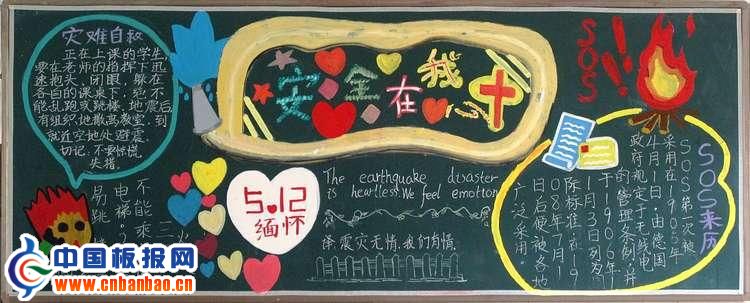 灾难自救
正在上课的学生
要在老师的指挥下迅
速抱头、闭眼、躲在
各自的课桌下,绝不
能乱跑或跳楼,地震后
有组织地撤离教室,到
就近空地处避震。
切记:不要惊慌
失措。
安全在我心
5.12
缅怀
The earthquake disaster
is heartless. We feel emotion
译:震灾无情,我们有情。
不能乘
电梯
易跳
SOS!!
SOS来历
SOS第一次被
采用在1905年
4月1日,由德国
政府规定于无线电
的管理条例,并
于1906年1
1月3日列为
际标准,在19
08年7月1
日后便被各地
广泛采用。
中国板报网
www.cnbanbao.cn